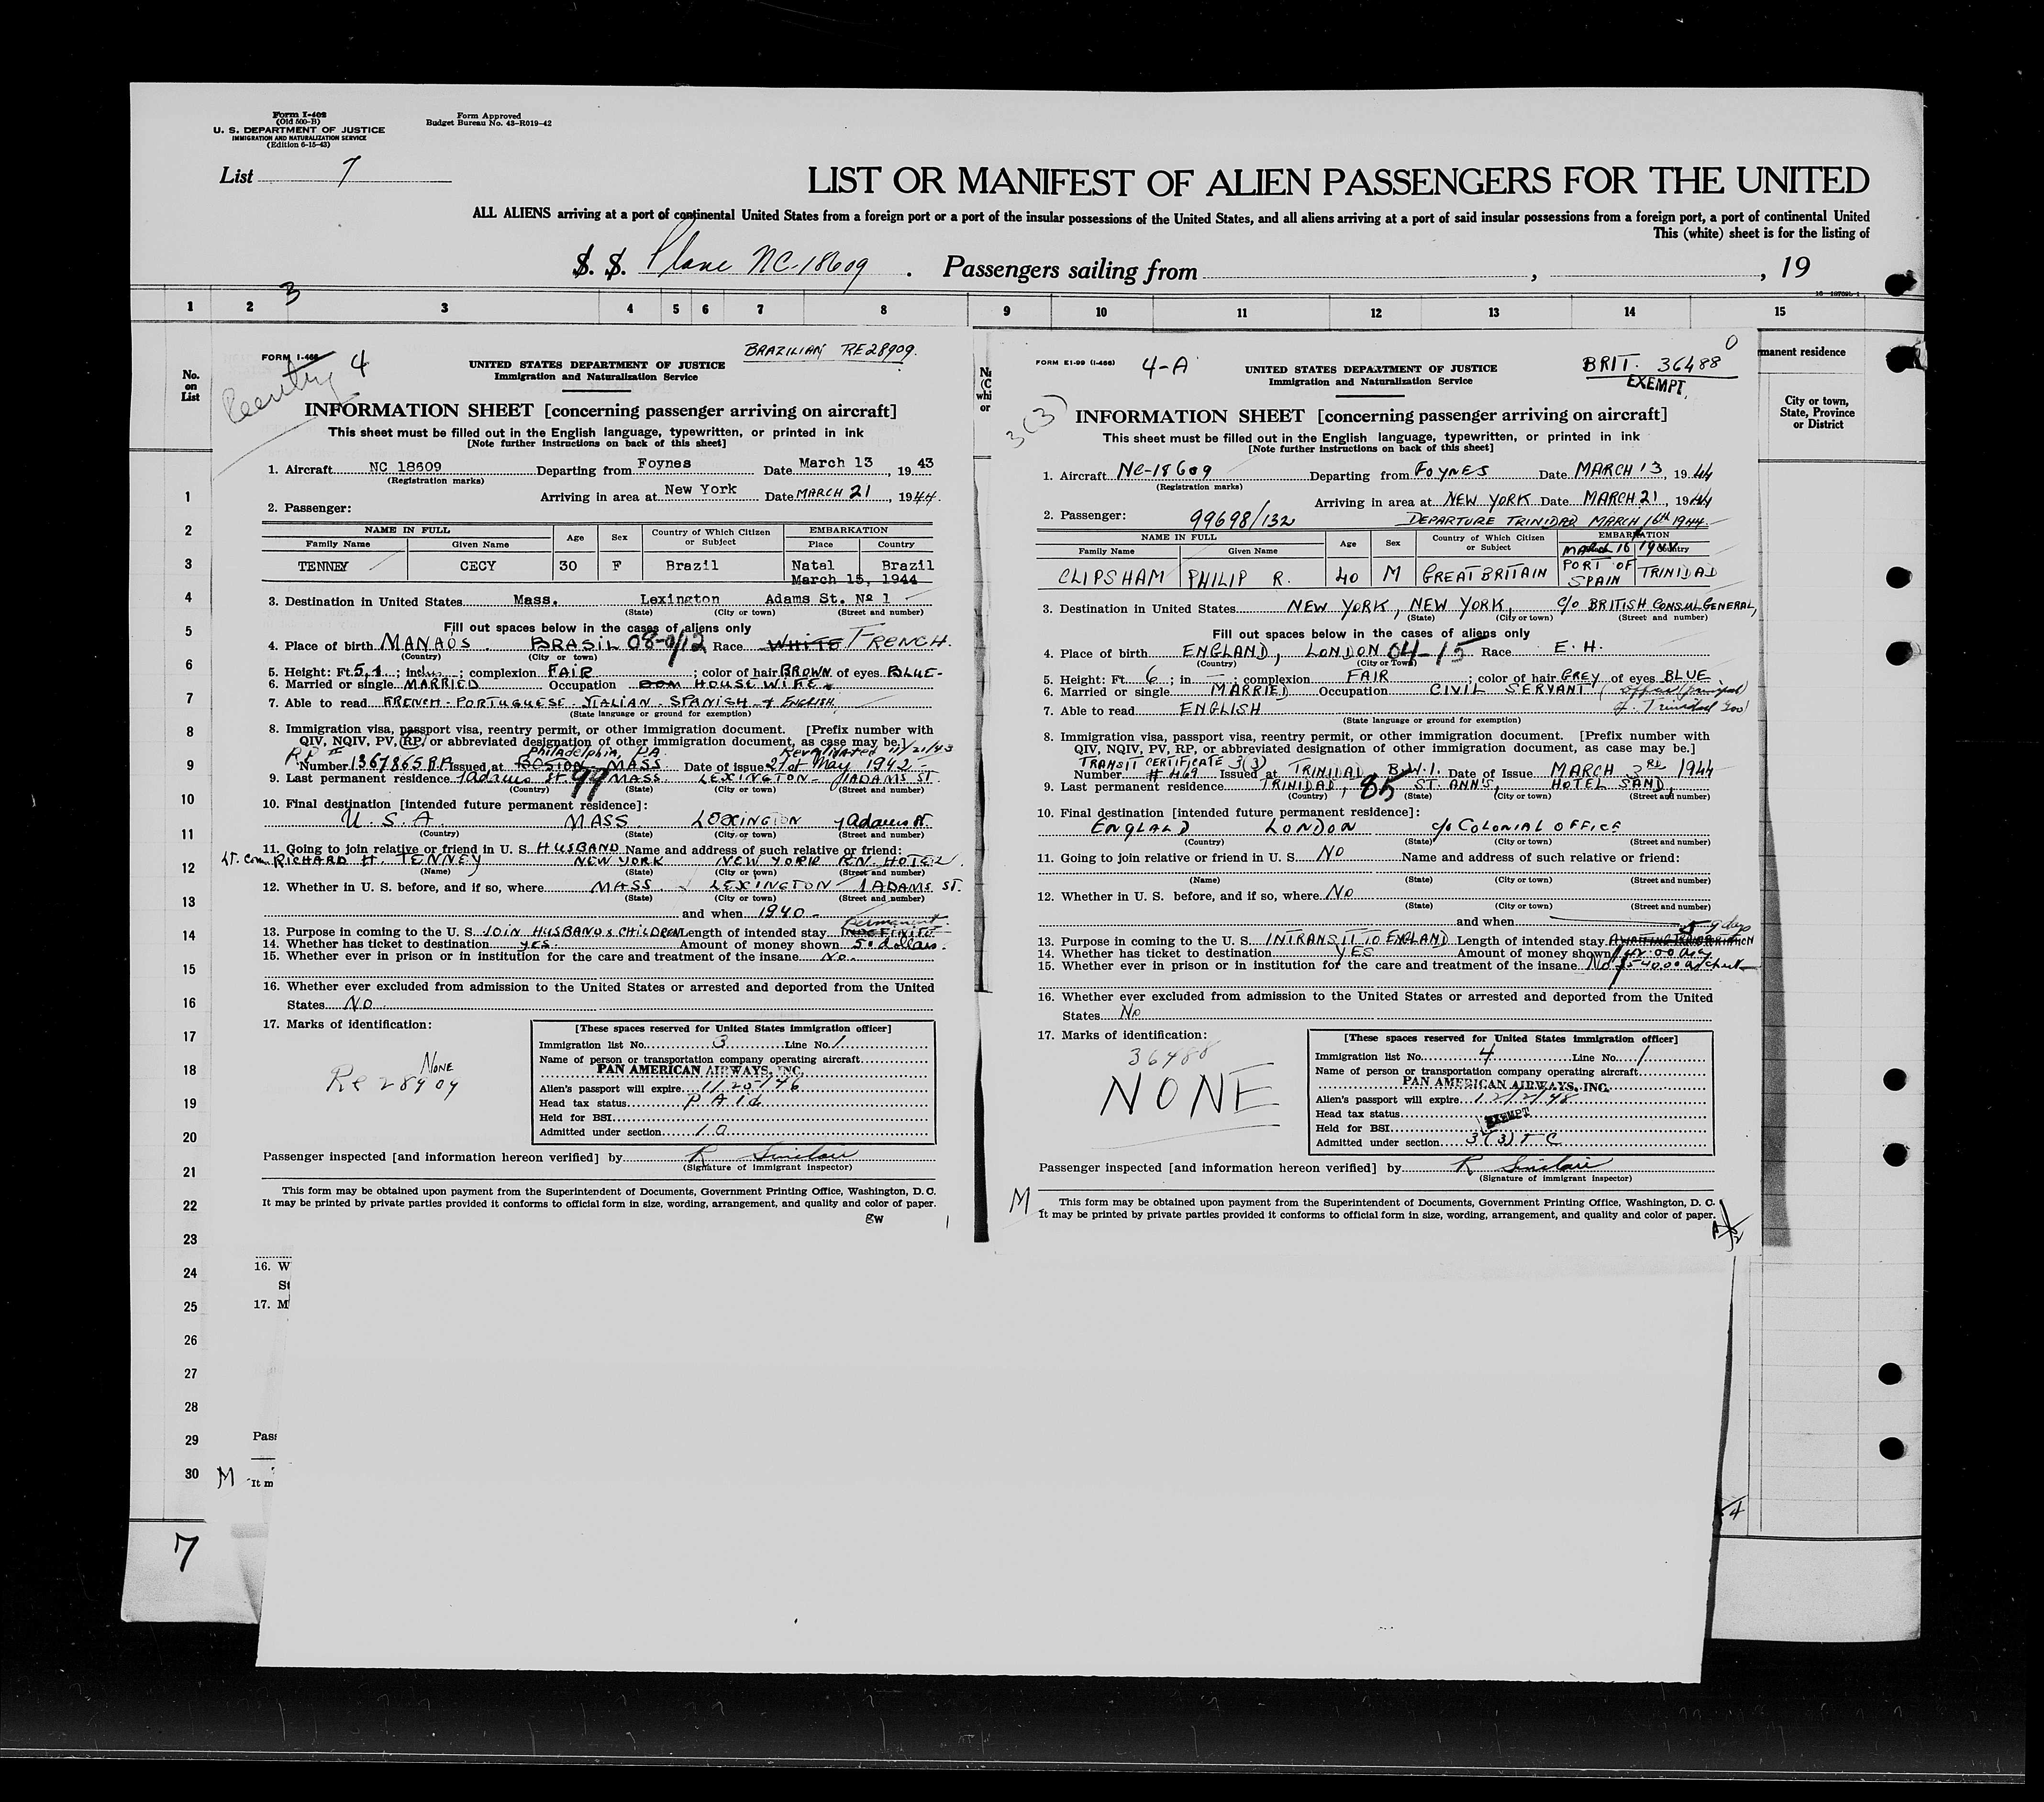 Form I-402
(Old 500-B)
U. S. DEPARTMENT OF JUSTICE
IMMIGRATION AND NATURALIZATION SERVICE
(Edition 6-15-43)
Form Approved
Budget Bureau No. 43-R019-42
List 7
LIST OR MANIFEST OF ALIEN PASSENGERS FOR THE UNITED
ALL ALIENS arriving at a port of continental United States from a foreign port or a port of the insular possessions of the United States, and all aliens arriving at a port of said insular possessions from a foreign port, a port of continental United
This (white) sheet is for the listing of
S. S. Plane NC-18609 . Passengers sailing from , , 19
3
1 2 3 4 5 6 7 8 9 10 11 12 13 14 15
No.
on
List
1
2
3
4
5
6
7
8
9
10
11
12
13
14
15
16
17
18
19
20
21
22
23
24
25
26
27
28
29
30
7
FORM I-466
4
BRAZILIAN RE28909.
UNITED STATES DEPARTMENT OF JUSTICE
Immigration and Naturalization Service
INFORMATION SHEET [concerning passenger arriving on aircraft]
This sheet must be filled out in the English language, typewritten, or printed in ink
[Note further instructions on back of this sheet]
1. Aircraft NC 18609 Departing from Foynes Date March 13, 1943
(Registration marks)
Arriving in area at New York Date MARCH 21, 1944.
2. Passenger:
NAME IN FULL Age Sex Country of Which Citizen or Subject EMBARKATION
Family Name Given Name Place Country
TENNEY CECY 30 F Brazil Natal Brazil
March 15, 1944
3. Destination in United States Mass. Lexington Adams St. Nº 1
(State) (City or town) (Street and number)
Fill out spaces below in the cases of aliens only
4. Place of birth MANAÓS BRASIL 08-0/12 Race WHITE FRENCH.
(Country) (City or town)
5. Height: Ft. 5,1 ; in. ; complexion FAIR ; color of hair BROWN of eyes BLUE-
6. Married or single MARRIED Occupation DOM HOUSE WIFE.
7. Able to read FRENCH-PORTUGUESE-ITALIAN-SPANISH & ENGLISH.
(State language or ground for exemption)
8. Immigration visa, passport visa, reentry permit, or other immigration document. [Prefix number with
QIV, NQIV, PV, RP, or abbreviated designation of other immigration document, as case may be.]
Philadelphia, PA. Revalidated 11/21/43
Number 1367865 RP Issued at BOSTON-MASS Date of issue 21st May 1942-
9. Last permanent residence 1 adams St. 99 MASS LEXINGTON- 1 ADAMS ST.
(Country) (State) (City or town) (Street and number)
10. Final destination [intended future permanent residence]:
U. S. A. MASS LEXINGTON 1 Adams St.
(Country) (State) (City or town) (Street and number)
11. Going to join relative or friend in U. S. HUSBAND Name and address of such relative or friend:
Lt. Com. RICHARD H. TENNEY NEW YORK NEW YORK HOTEL
(Name) (State) (City or town) (Street and number)
12. Whether in U. S. before, and if so, where MASS LEXINGTON- 1 ADAMS ST.
(State) (City or town) (Street and number)
and when 1940-
Permanent
13. Purpose in coming to the U. S. JOIN HUSBAND & CHILDREN Length of intended stay INDEFINITE-
14. Whether has ticket to destination yes. Amount of money shown 50 dollars.
15. Whether ever in prison or in institution for the care and treatment of the insane No-
16. Whether ever excluded from admission to the United States or arrested and deported from the United
States No
17. Marks of identification:
NONE
Re 28909
[These spaces reserved for United States immigration officer]
Immigration list No. 3 Line No. 1
Name of person or transportation company operating aircraft
PAN AMERICAN AIRWAYS, INC.
Alien's passport will expire 1/20/46
Head tax status Paid
Held for BSI
Admitted under section 10
Passenger inspected [and information hereon verified] by R Sinclair
(Signature of immigrant inspector)
This form may be obtained upon payment from the Superintendent of Documents, Government Printing Office, Washington, D. C.
It may be printed by private parties provided it conforms to official form in size, wording, arrangement, and quality and color of paper.
gw
16. W
St
17. M
Pass
M It m
FORM E1-99 (I-466)
4-A
BRIT. 36488
EXEMPT.
0
3(3)
UNITED STATES DEPARTMENT OF JUSTICE
Immigration and Naturalization Service
INFORMATION SHEET [concerning passenger arriving on aircraft]
This sheet must be filled out in the English language, typewritten, or printed in ink
[Note further instructions on back of this sheet]
1. Aircraft NC-18609 Departing from FOYNES Date MARCH 13, 1944
(Registration marks)
Arriving in area at NEW YORK Date MARCH 21, 1944
2. Passenger: 99698/132 DEPARTURE TRINIDAD MARCH 16th 1944.
NAME IN FULL Age Sex Country of Which Citizen or Subject EMBARKATION
Family Name Given Name March 16 1944 Country
CLIPSHAM PHILIP R. 40 M GREAT BRITAIN PORT OF SPAIN TRINIDAD
3. Destination in United States NEW YORK, NEW YORK, C/O BRITISH CONSUL GENERAL,
(State) (City or town) (Street and number)
Fill out spaces below in the cases of aliens only
4. Place of birth ENGLAND, LONDON 04-15 Race E. H.
(Country) (City or Town)
5. Height: Ft. 6 ; in — ; complexion FAIR ; color of hair GREY of eyes BLUE
6. Married or single MARRIED Occupation CIVIL SERVANT
7. Able to read ENGLISH of Trinidad Gov
(State language or ground for exemption)
8. Immigration visa, passport visa, reentry permit, or other immigration document. [Prefix number with
QIV, NQIV, PV, RP, or abbreviated designation of other immigration document, as case may be.]
TRANSIT CERTIFICATE 3(3)
Number # 469 Issued at TRINIDAD B.W.I. Date of Issue MARCH 3RD 1944
9. Last permanent residence TRINIDAD, 85 ST. ANN'S, HOTEL SAND
(Country) (State) (City or town) (Street and number)
10. Final destination [intended future permanent residence]:
ENGLAND LONDON C/O COLONIAL OFFICE
(Country) (State) (City or town) (Street and number)
11. Going to join relative or friend in U. S. NO Name and address of such relative or friend:
(Name) (State) (City or town) (Street and number)
12. Whether in U. S. before, and if so, where NO
(State) (City or town) (Street and number)
and when
days
13. Purpose in coming to the U. S. INTRANSIT TO ENGLAND Length of intended stay
14. Whether has ticket to destination YES Amount of money shown
15. Whether ever in prison or in institution for the care and treatment of the insane No
16. Whether ever excluded from admission to the United States or arrested and deported from the United
States No
17. Marks of identification:
36488
NONE
[These spaces reserved for United States immigration officer]
Immigration list No. 4 Line No. 1
Name of person or transportation company operating aircraft
PAN AMERICAN AIRWAYS, INC.
Alien's passport will expire 12/2/48
Head tax status EXEMPT
Held for BSI
Admitted under section 3(3) T C
Passenger inspected [and information hereon verified] by R Sinclair
(Signature of immigrant inspector)
M
This form may be obtained upon payment from the Superintendent of Documents, Government Printing Office, Washington, D. C.
It may be printed by private parties provided it conforms to official form in size, wording, arrangement, and quality and color of paper.
manent residence
City or town,
State, Province
or District